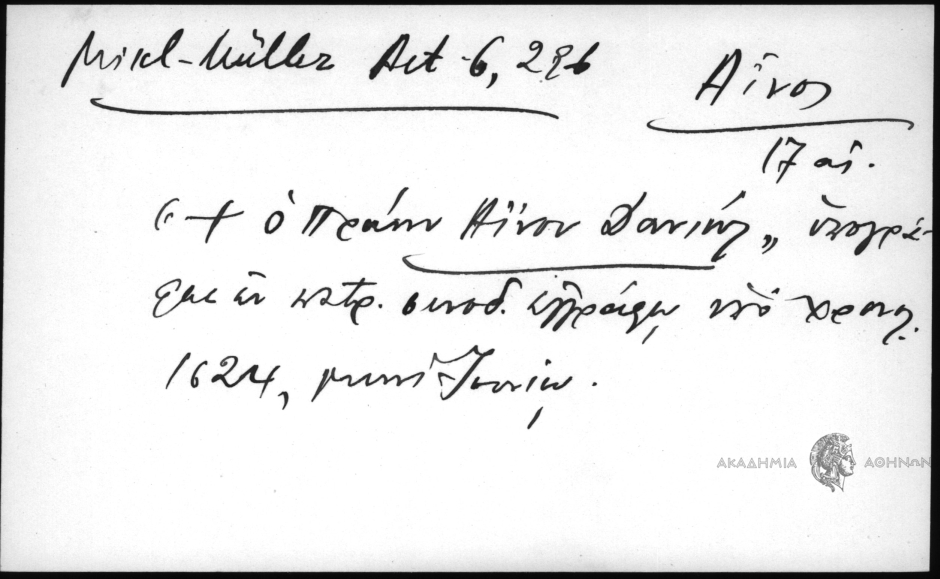 Mikl-Müller Act 6, 296
Αἶνος
17 αἰ.
"+ ὁ πρώην Αἴνου Δανιήλ,, ὑπογρά-
φει ἐν πατρ. συνοδ. ἐγγράφῳ ὑπὸ χρονολ.
1624, μηνὶ Ἰουνίῳ.
ΑΚΑΔΗΜΙΑ ΑΘΗΝΩΝ